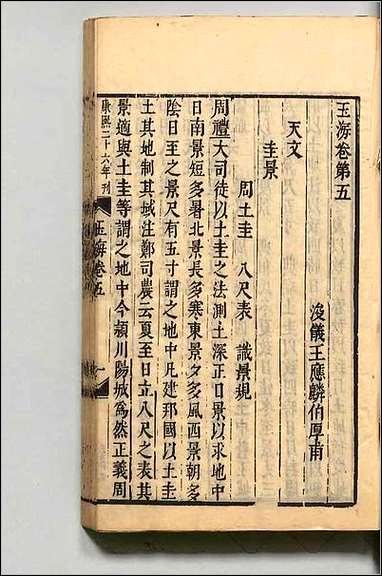 玉海卷第五
浚儀王應麟伯厚甫
天文
圭景
周土圭　八尺表　識景規
周禮大司徒以土圭之法測土深正日景以求地中
日南景短多暑北景長多寒東景夕多風西景朝多
陰日至之景尺有五寸謂之地中凡建邦國以土圭
土其地制其域注鄭司農云夏至日立八尺之表其
景適與土圭等謂之地中今潁川陽城爲然正義周
康熙二十六年刊
玉海卷五
一